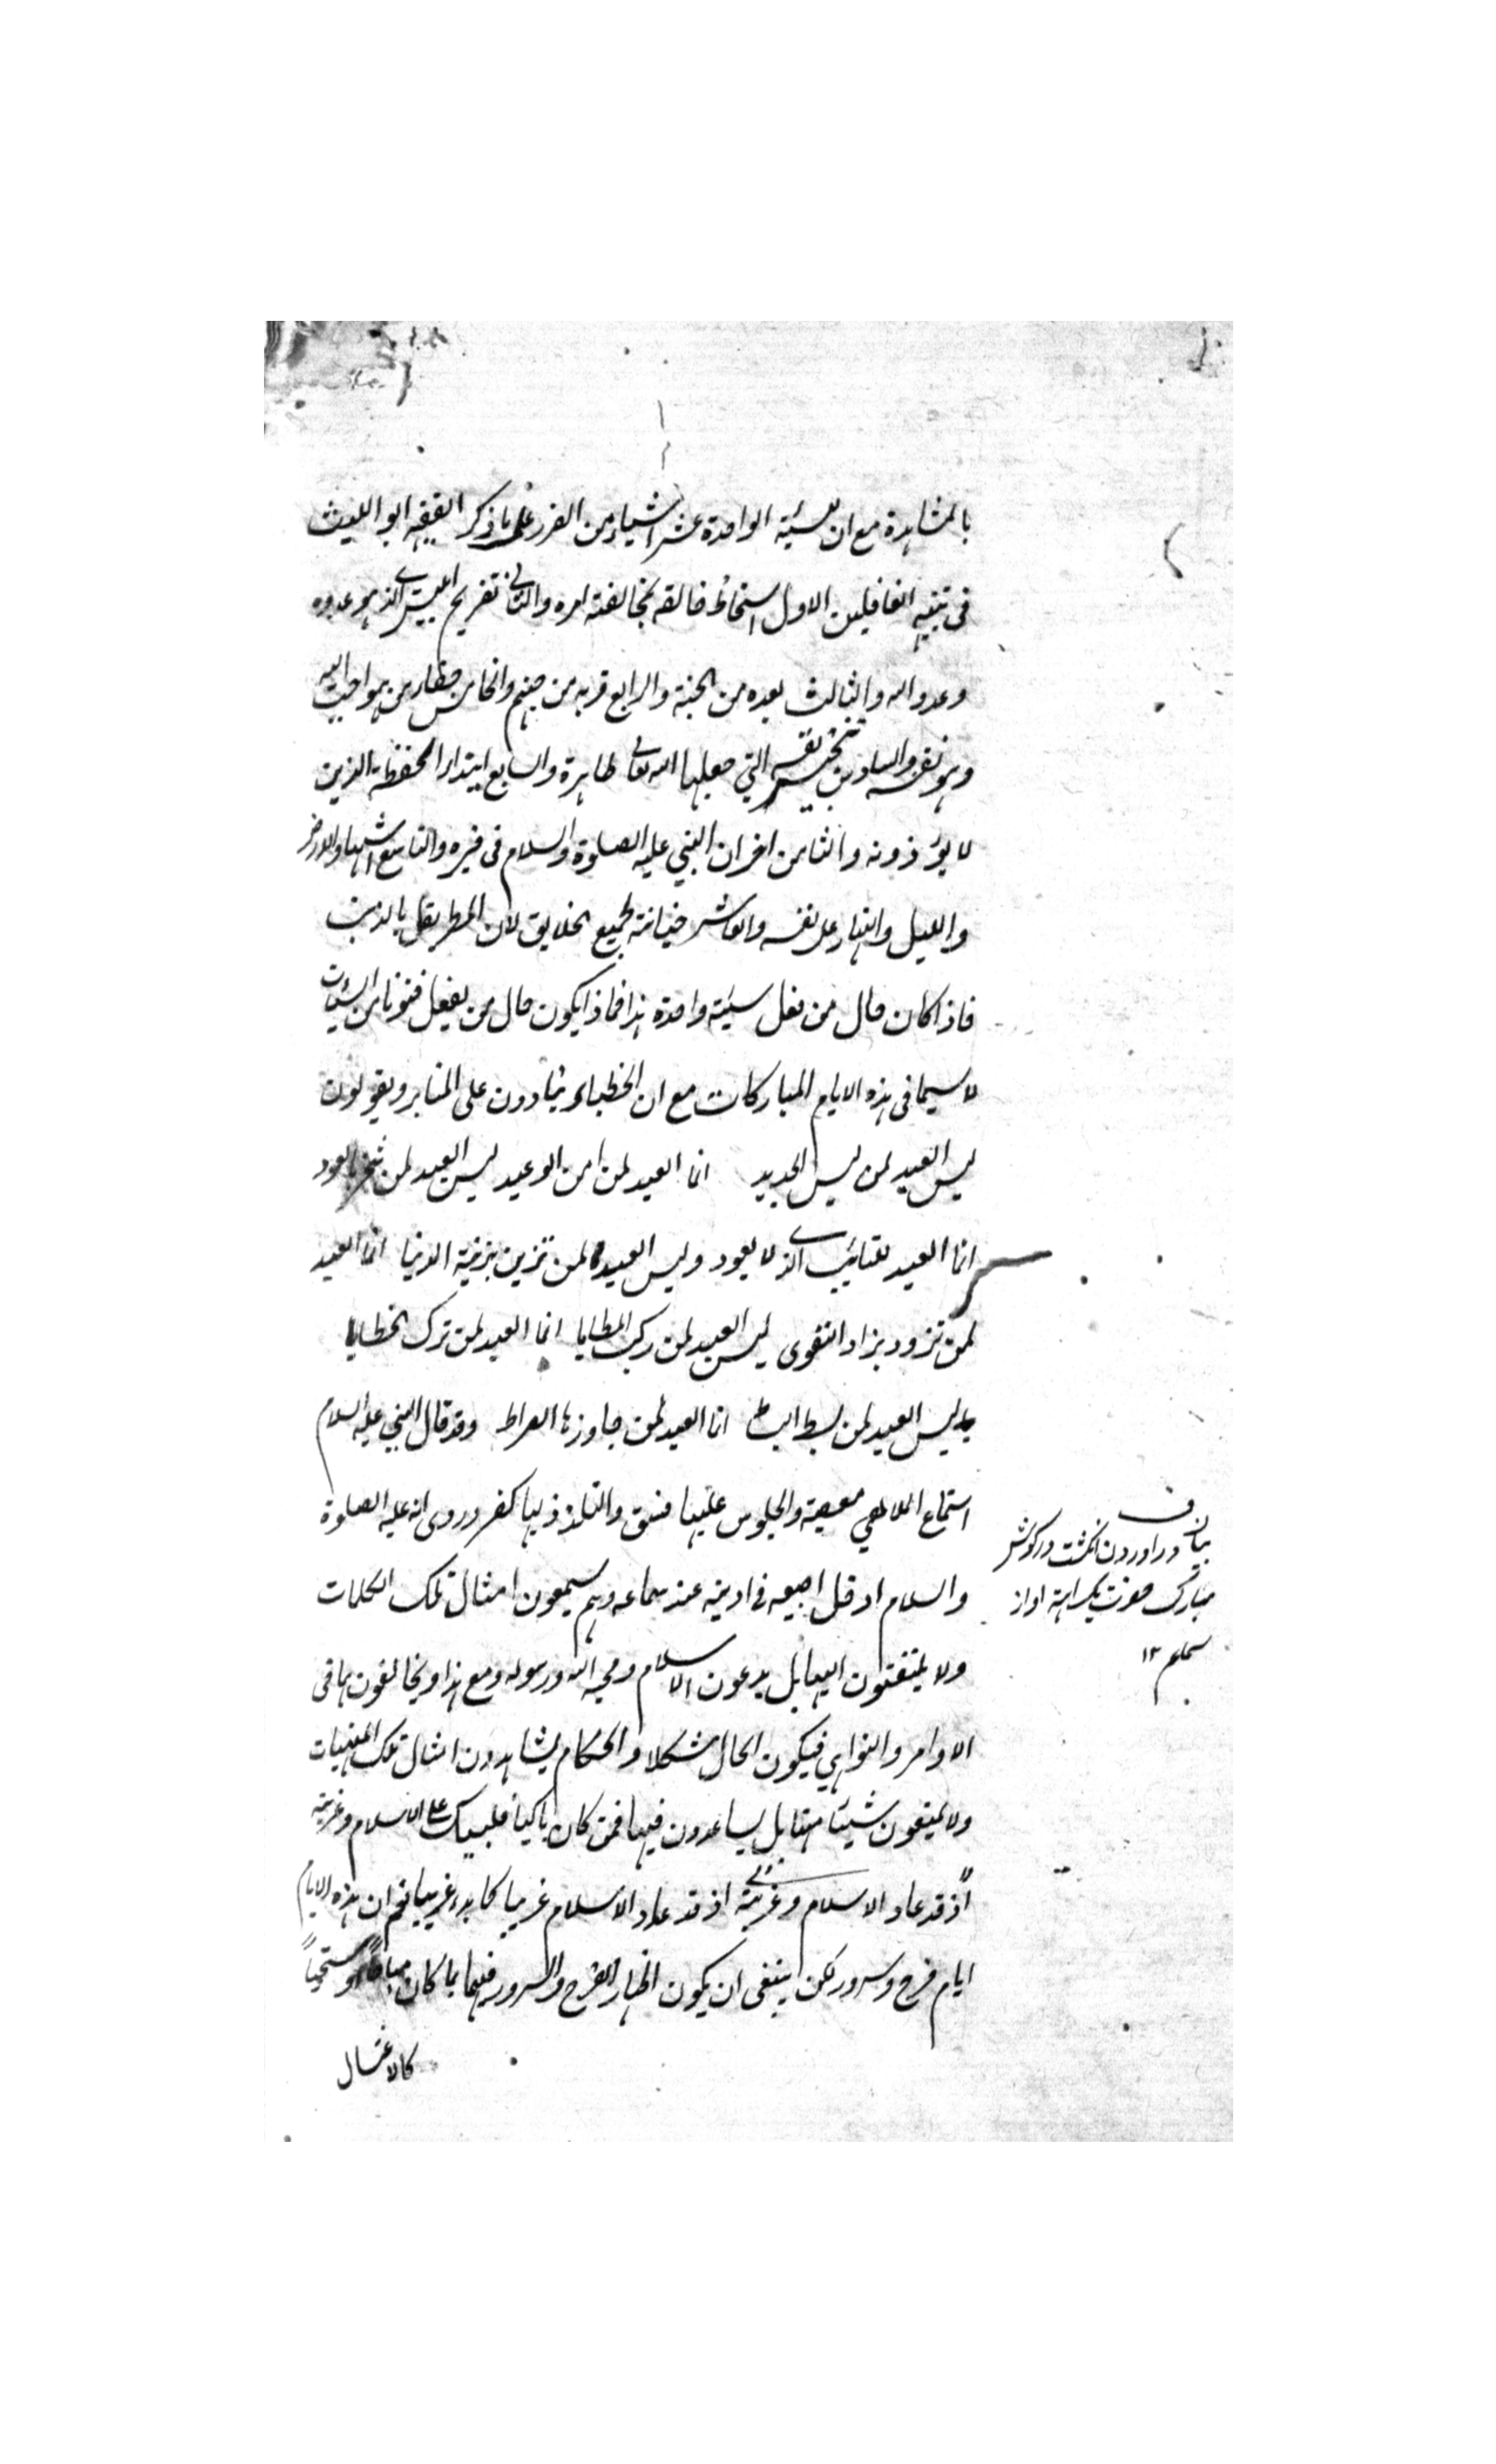 بالمشاهدة مع ان للسيئة الواحدة عشر اشياء من الضرر على ما ذكر الفقيه ابو الليث
فى تنبيه الغافلين الاول اسخاط خالقه بمخالفته امره والثانى تفريح ابليس الذى هو عدوه
وعدو الله والثالث بعده من الجنة والرابع قربه من جهنم والخامس من هو احب اليه
وهو نفسه والسادس تنجيس نفسه التي جعلها الله تعالى طاهرة والسابع ايذاء الحفظة الذين
لا يؤذونه والثامن احزان النبي عليه الصلوة والسلام فى قبره والتاسع اشهاد الارض
والليل والنهار على نفسه والعاشر خيانة لجميع الخلايق لان المطر يقل بالذنب
فاذا كان حال من فعل سيئة واحدة هذا فماذا يكون حال من يفعل فنونا من السيئات
لا سيما فى هذه الايام المباركات مع ان الخطباء ينادون على المنابر ويقولون
ليس العيد لمن لبس الجديد انما العيد لمن امن الوعيد ليس العيد لمن تبخر بالعود
انما العيد للتائب الذى لا يعود وليس العيد لمن تزين بزينة الدنيا انما العيد
لمن تزود بزاد التقوى ليس العيد لمن ركب المطايا انما العيد لمن ترك الخطايا
ليس العيد لمن بسط البساط انما العيد لمن جاوز الصراط وقد قال النبي عليه السلام
استماع الملاهي معصية والجلوس عليها فسق والتلذذ بها كفر وروى انه عليه الصلوة
والسلام ادخل اصبعه فى اذنيه عند سماعه وهم يسمعون امثال تلك الكلمات
ولا يلتفتون اليها بل يدعون الاسلام ومحبة الله ورسوله ومع هذا ويخالفونهما فى
الاوامر والنواهي فيكون الحال مشكلا والحكام يشاهدون امثال تلك المنهيات
ولا يمنعون شيئا منها بل يساعدون فيها فمن كان باكيا فليبك على الاسلام وغربته
اذ قد عاد الاسلام وغربته اذ قد عاد الاسلام غريبا كما بدء غريبا نعم ان هذه الايام
ايام فرح وسرور لكن ينبغى ان يكون اظهار الفرح والسرور فيها بما كان مباحا او مستحبا
كالاغتسال
بيان
در اوردن انكشت در كوش
مبارك حضرت بكراهة اواز
سماع ١٢